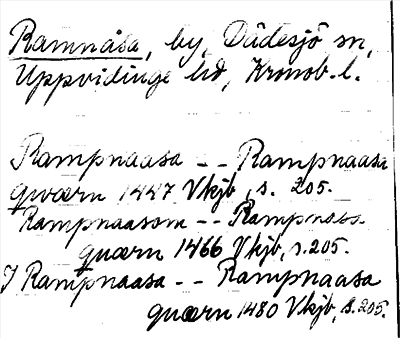 Ramnåsa, by, Dädesjö sn,
Uppvidinge hd, Kronob. l.
Rampnaasa -- Rampnaasa
qwærn 1447 Vkjb, s. 205.
Rampnaasom -- Rampnaas
quærn 1466 Vkjb, s. 205.
J Rampnaasa -- Rampnaasa
quærn 1480 Vkjb, s. 205.